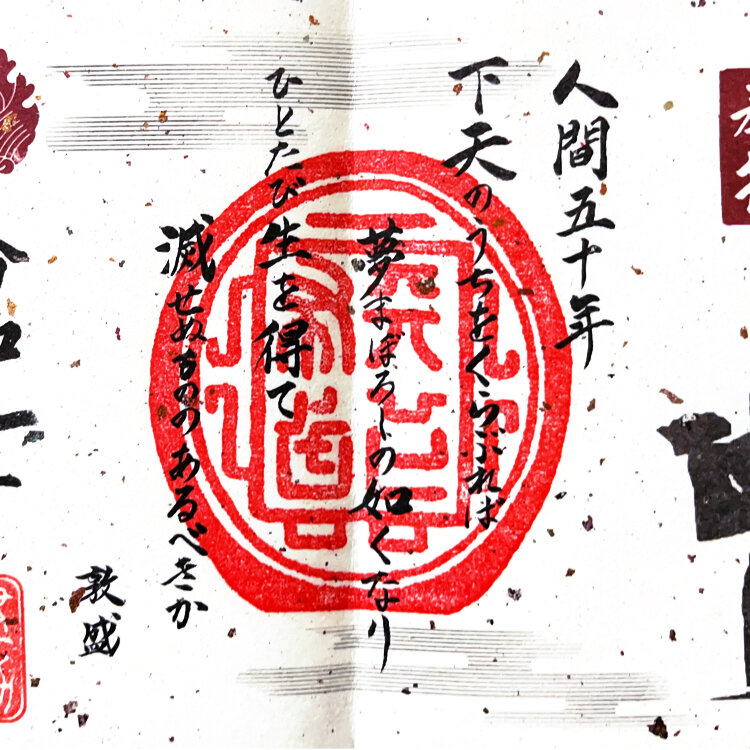 人間五十年
下天のうちをくらぶれば
夢まぼろしの如くなり
ひとたび生を得て
滅せぬもののあるべきか
敦盛